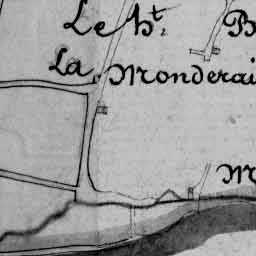 Le ht.
B
La Monderai
M